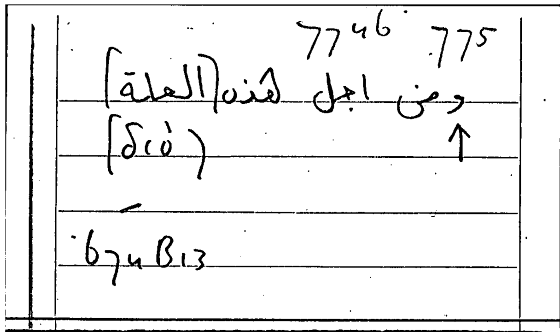 7746 775
ومن اجل هذه (العلة]
(διό]
↑
674B13